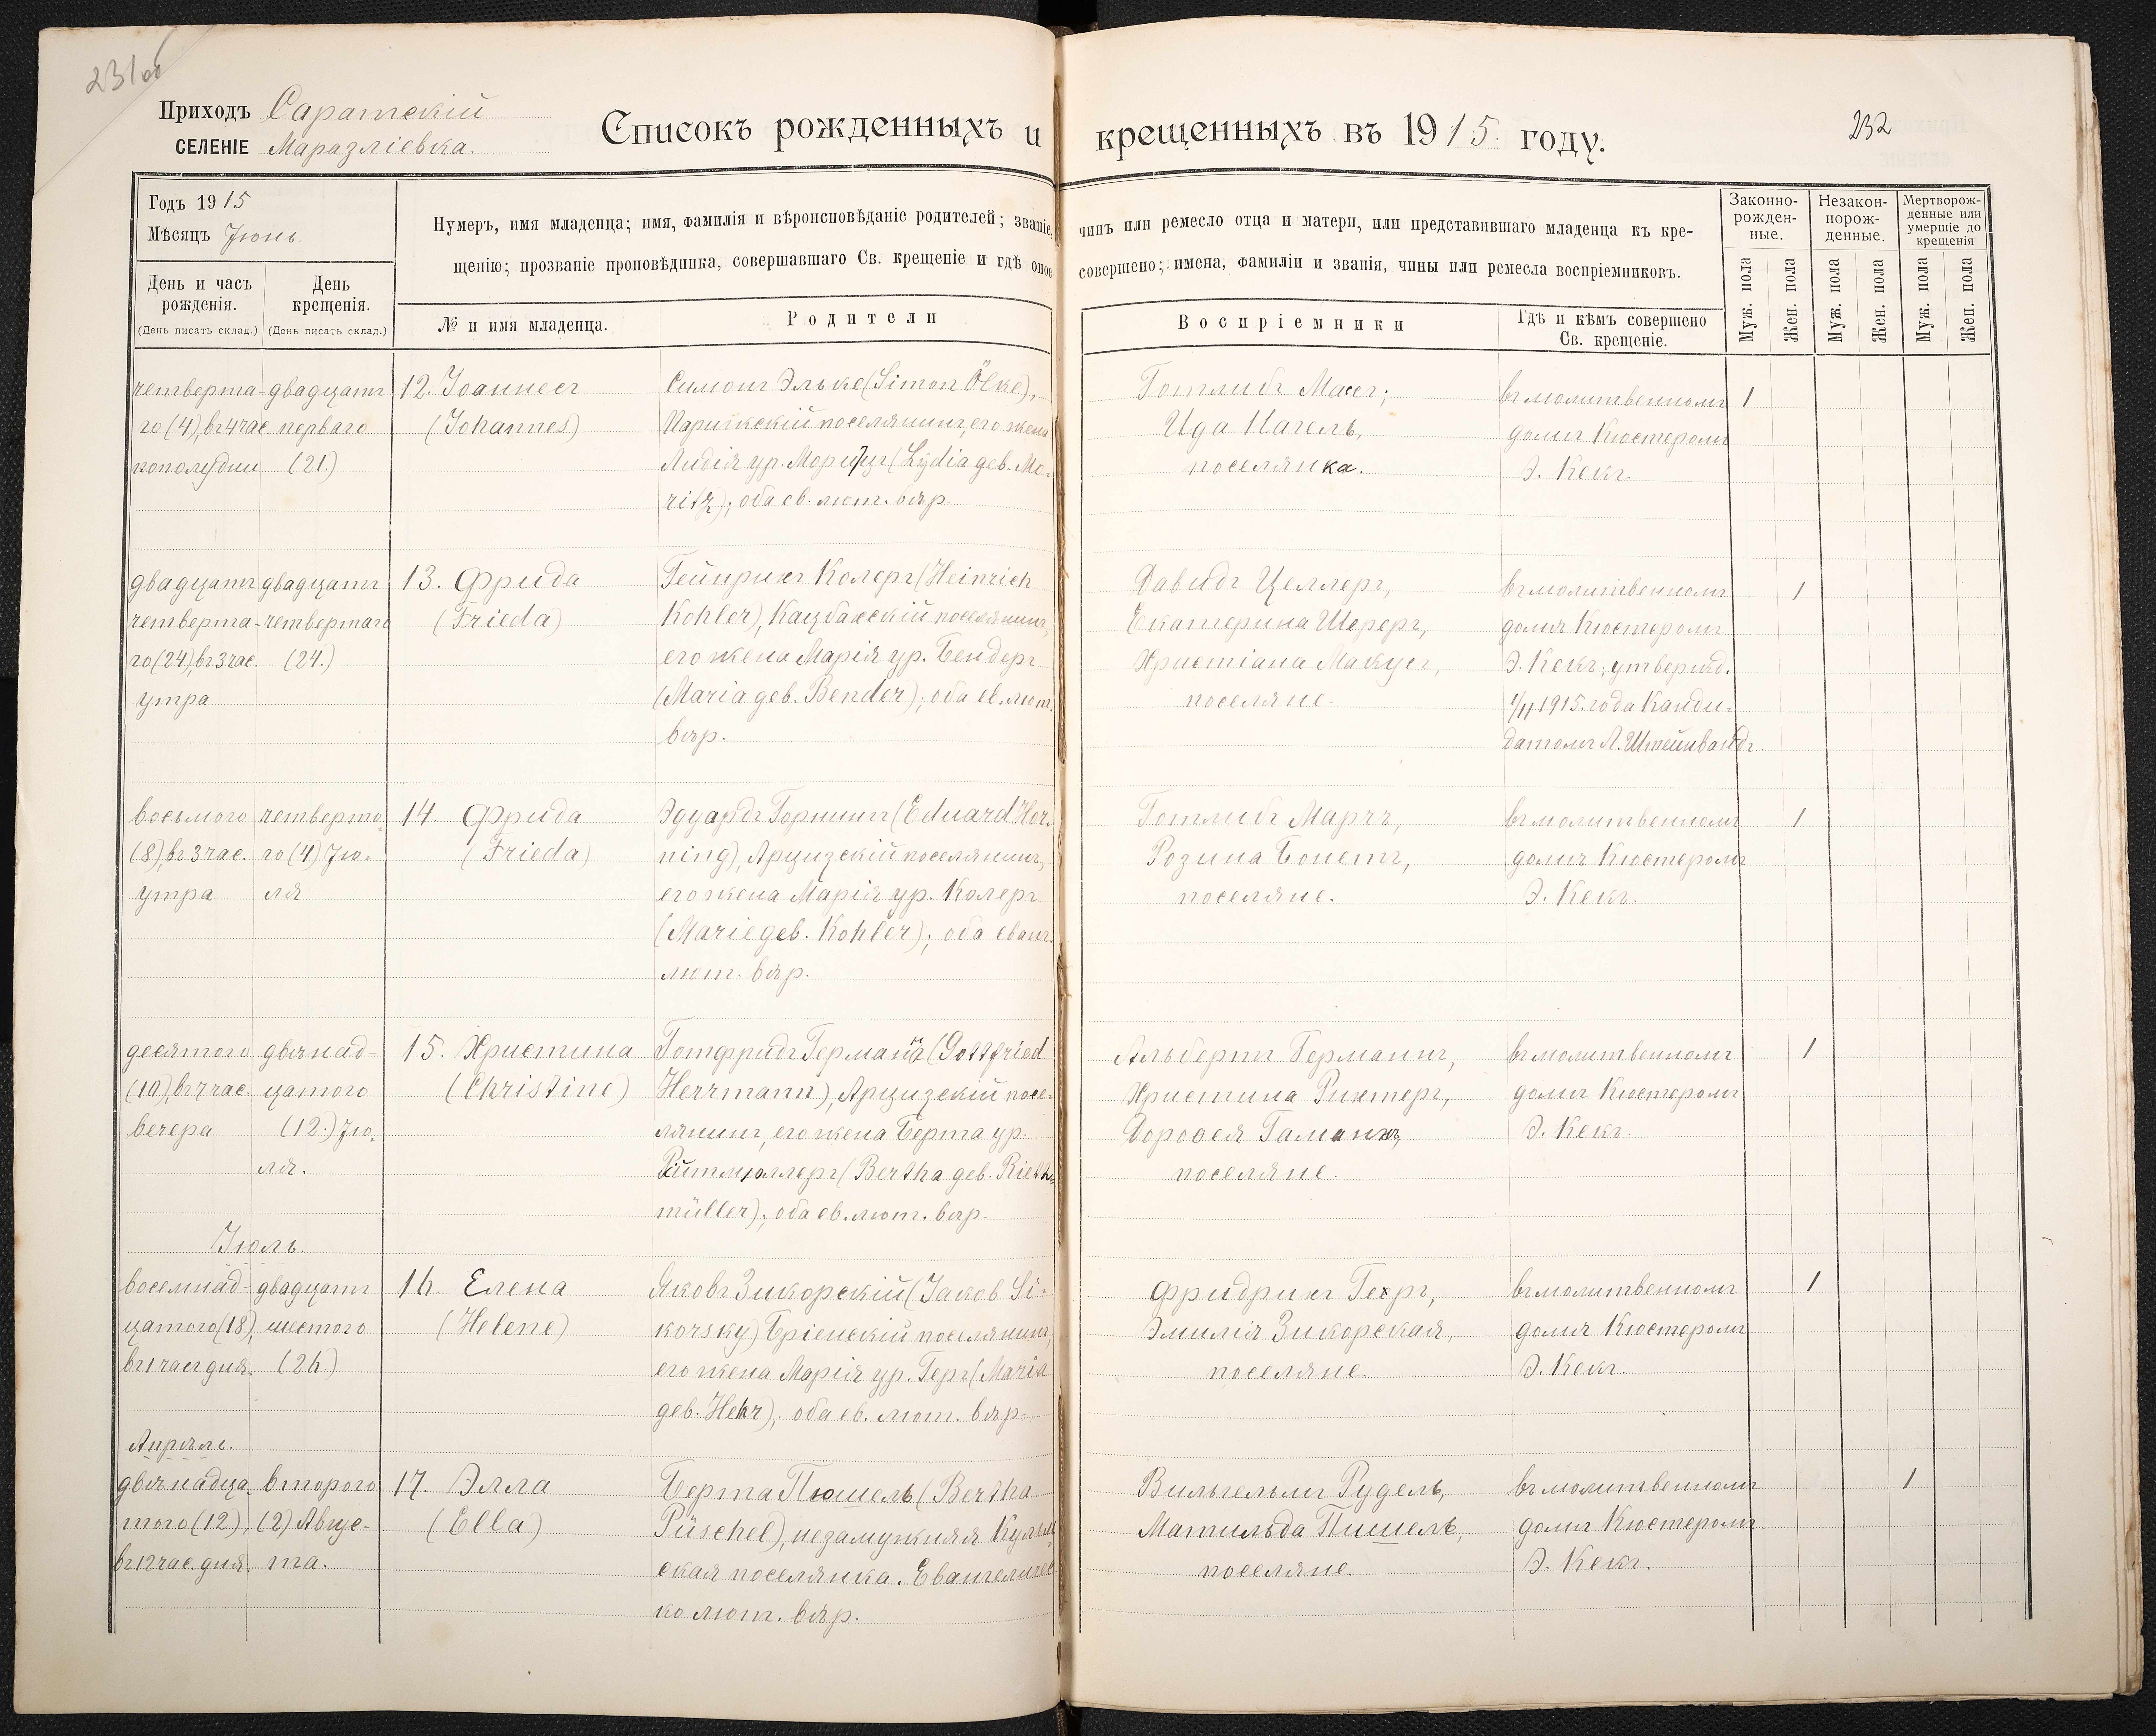 231 об
Приходъ Саратскій
СЕЛЕНІЕ Маразліевка.
Списокъ рожденныхъ и крещенныхъ въ 1915 году.
232
Годъ 1915
Мѣсяцъ Іюнь.
Нумеръ, имя младенца; имя, фамилія и вѣроисповѣданіе родителей; званіе, чинъ или ремесло отца и матери, или представившаго младенца къ кре-
щенію; прозваніе проповѣдника, совершавшаго Св. крещеніе и гдѣ оное совершено; имена, фамиліи и званія, чины или ремесла воспріемниковъ.
Законно-
рожден-
ные.
Незакон-
норож-
денные.
Мертворож-
денные или
умершіе до
крещенія
День и часъ
рожденія.
(День писать склад.)
День
крещенія.
(День писать склад.)
№ и имя младенца.
Родители
Воспріемники
Гдѣ и кѣмъ совершено
Св. крещеніе.
Муж. пола
Жен. пола
Муж. пола
Жен. пола
Муж. пола
Жен. пола
четверта-
го (4), въ 4 час
пополудни
двадцать
перваго
(21.)
12. Іоаннесъ
(Johannes)
Симонъ Эльке (Simon Ölke),
Парижскій поселянинъ, его жена
Лидія ур. Морицъ (Lydia geb. Mo-
ritz); оба ев. лют. вѣр.
Готлибъ Маасъ;
Ида Нагель,
поселянка.
въ молитвенномъ
домѣ Кюстеромъ
Э. Кекъ.
1
двадцать
четверта-
го (24), въ 3 час.
утра
двадцать
четвертаго
(24.)
13. Фрида
(Frieda)
Гейнрихъ Колеръ (Heinrich
Kohler), Кацбахскій поселянинъ,
его жена Марія ур. Бендеръ
(Maria geb. Bender); оба ев. лют.
вѣр.
Давидъ Целлеръ,
Екатерина Шереръ,
Христіана Макусъ,
поселяне.
въ молитвенномъ
домѣ Кюстеромъ
Э. Кекъ; утвержд.
1/11 1915. года Канди-
датомъ Л. Штейнвандъ.
1
восьмого
(8), въ 3 час.
утра
четверто-
го (4) Ію-
ля
14. Фрида
(Frieda)
Эдуардъ Горнингъ (Eduard Hor-
ning), Арцизскій поселянинъ,
его жена Марія ур. Колеръ
(Marie geb. Kohler); оба еванг.
лют. вѣр.
Готлибъ Марчъ,
Розина Бонетъ,
поселяне.
въ молитвенномъ
домѣ Кюстеромъ
Э. Кекъ.
1
десятого
(10), въ 7 час.
вечера
двѣнад-
цатого
(12.) Ію-
ля.
15. Христина
(Christine)
Готфридъ Германъ (Gottfried
Herrmann), Арцизскій посе-
лянинъ, его жена Берта ур.
Ритмюллеръ (Bertha geb. Rieth-
müller); оба ев. лют. вѣр.
Альбертъ Германнъ,
Христина Рихтеръ,
Доровея Гаманнъ,
поселяне.
въ молитвенномъ
домѣ Кюстеромъ
Э. Кекъ.
1
Іюль.
восемнад-
цатого (18),
въ 1 часъ дня.
двадцать
шестого
(26.)
16. Елена
(Helene)
Яковъ Зикорскій (Jakob Si-
korsky) Бріенскій поселянинъ,
его жена Марія ур. Геръ (Maria
geb. Hehr); оба ев. лют. вѣр.
Фридрихъ Гехръ,
Эмилія Зикорская,
поселяне.
въ молитвенномъ
домѣ Кюстеромъ
Э. Кекъ.
1
Апрѣль.
двѣнадца-
того (12),
въ 12 час. дня.
второго
(2) Авгус-
та.
17. Элла
(Ella)
Берта Пюшель (Bertha
Püschel), незамужняя Кульм-
ская поселянка. Евангеличес-
ко лют. вѣр.
Вильгельмъ Рудель,
Матильда Пишель,
поселяне.
въ молитвенномъ
домѣ Кюстеромъ
Э. Кекъ.
1